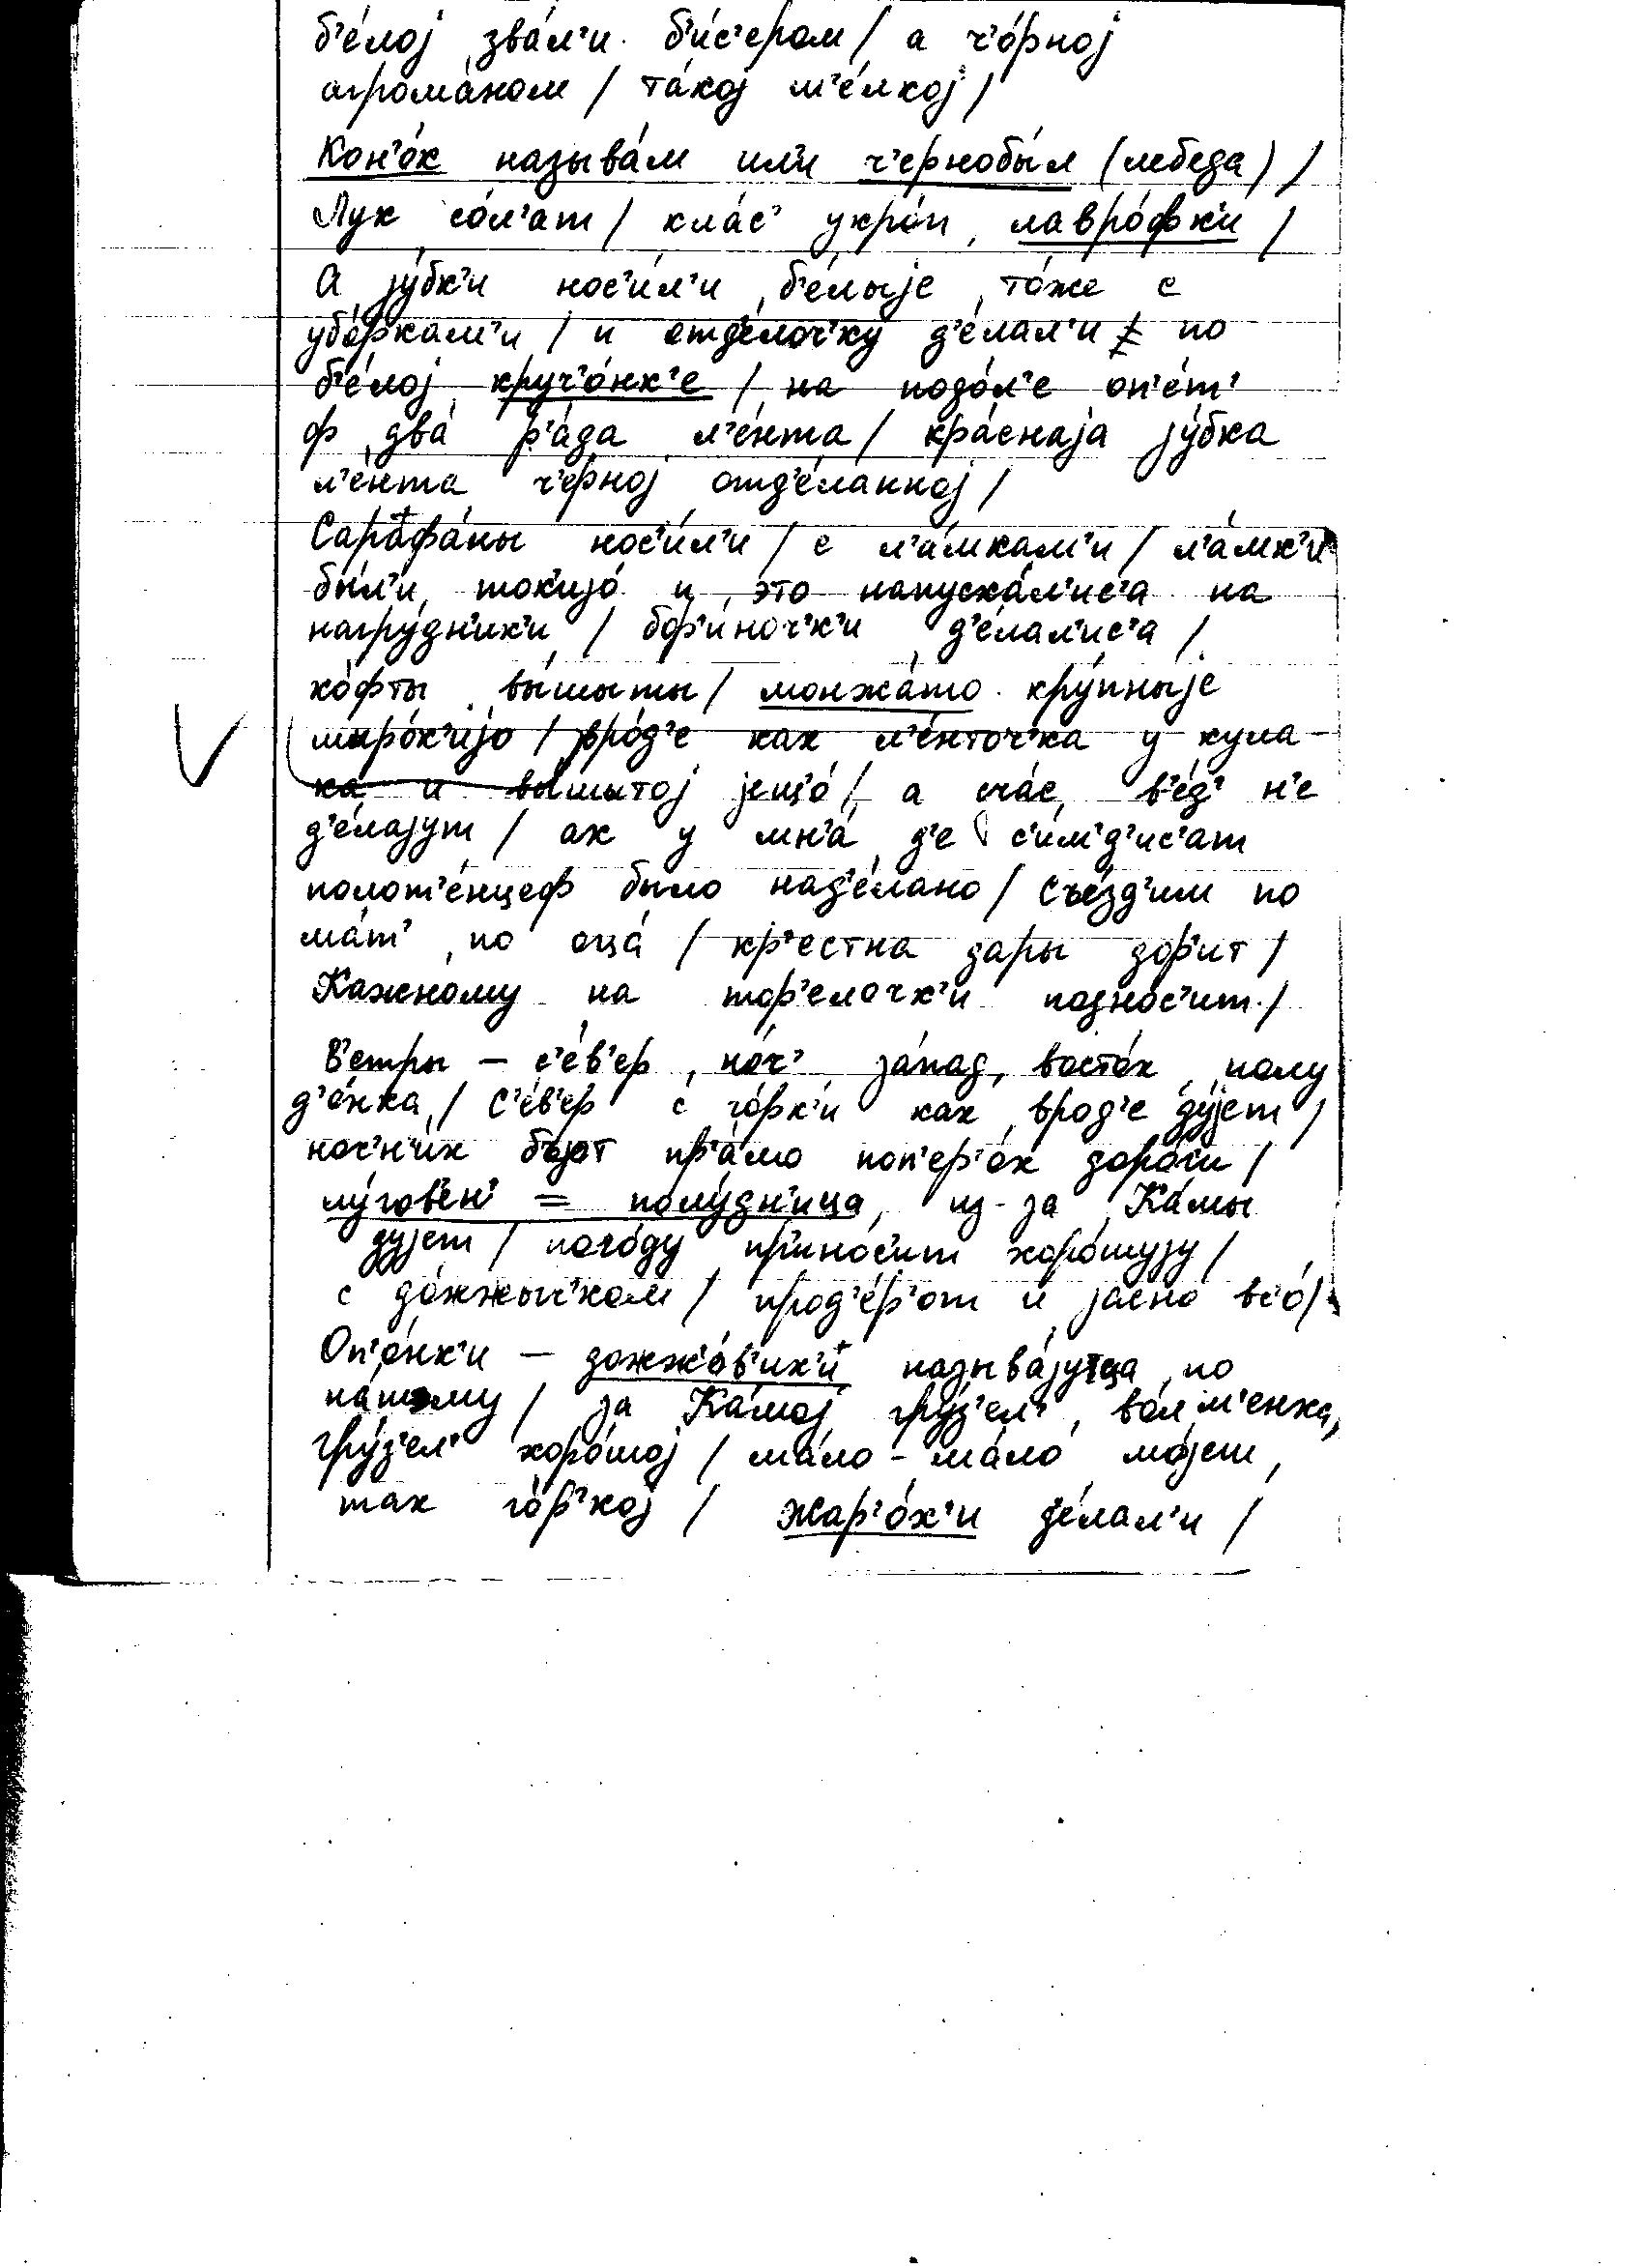 б'е́лој зва́л'и б'и́с'ером / а ч'о́рној
аграма́ном / та́кој м'е́лкој /
Кон'о́к называ́м ил'и ч'ернобы́л (лебеда) /
Лук со́л'ат / кла́с' укро́п, лавро́фк'и /
А јубк'и нос'и́л'и б'е́лыје, то́же с
убо́ркам'и / и отд'е́лоч'ку д'е́лал'и по
б'е́лој круч'о́нк'е / на подо́л'е оп'е́т'
ф два́ р'а́да л'е́нта / кра́снаја ју́бка
л'е́нта ч'е́рној отд'е́ланној /
Сарафа́ны нос'и́л'и / с л'а́мкам'и / л'а́мк'и
бы́л'и ток'ијо́ и это напуска́л'ис'а на
нагру́дн'ик'и / бор'и́ноч'к'и д'е́лал'ис'а /
ко́фты вы́шыты / монжа́то кру́пныје
шыро́к'ијо / вро́д'е как л'е́нточ'ка у кула-
ка и вы́шытој јещо́ / а счас, в'ед' н'е
д'е́лајут / ак у мн'а́ д'е с'и́м'д'ис'ат
полот'е́нцеф было над'е́лано / Съе́зд'им по
ма́т', по оца́ / кр'естна дары дор'ит /
Кажному на тор'елочк'и подно́с'ит /
В'етры – с'е́в'ер, но́ч', за́пад, восто́к, полу
д'о́нка / С'е́в'ер с го́рк'и как врод'е ду́јет /
ноч'н'и́к бјот пр'а́мо поп'ер'о́к доро́ги /
лу́гов'ен' = полу́дн'ица, из-за Ка́мы
дујет / пого́ду пр'ино́с'ит хоро́шују /
с до́жжыч'ком / прод'е́р'от и јасно вс'о́ /
Оп'о́нк'и – дожж'о́в'ик'и называ́јутца по
на́шому / за Ка́мој гру́з'ел', вол м'енка,
гру́з'ел' хоро́шој / ма́ло-ма́ло мо́јет,
так го́р'кој / жар'о́х'и д'е́лал'и /